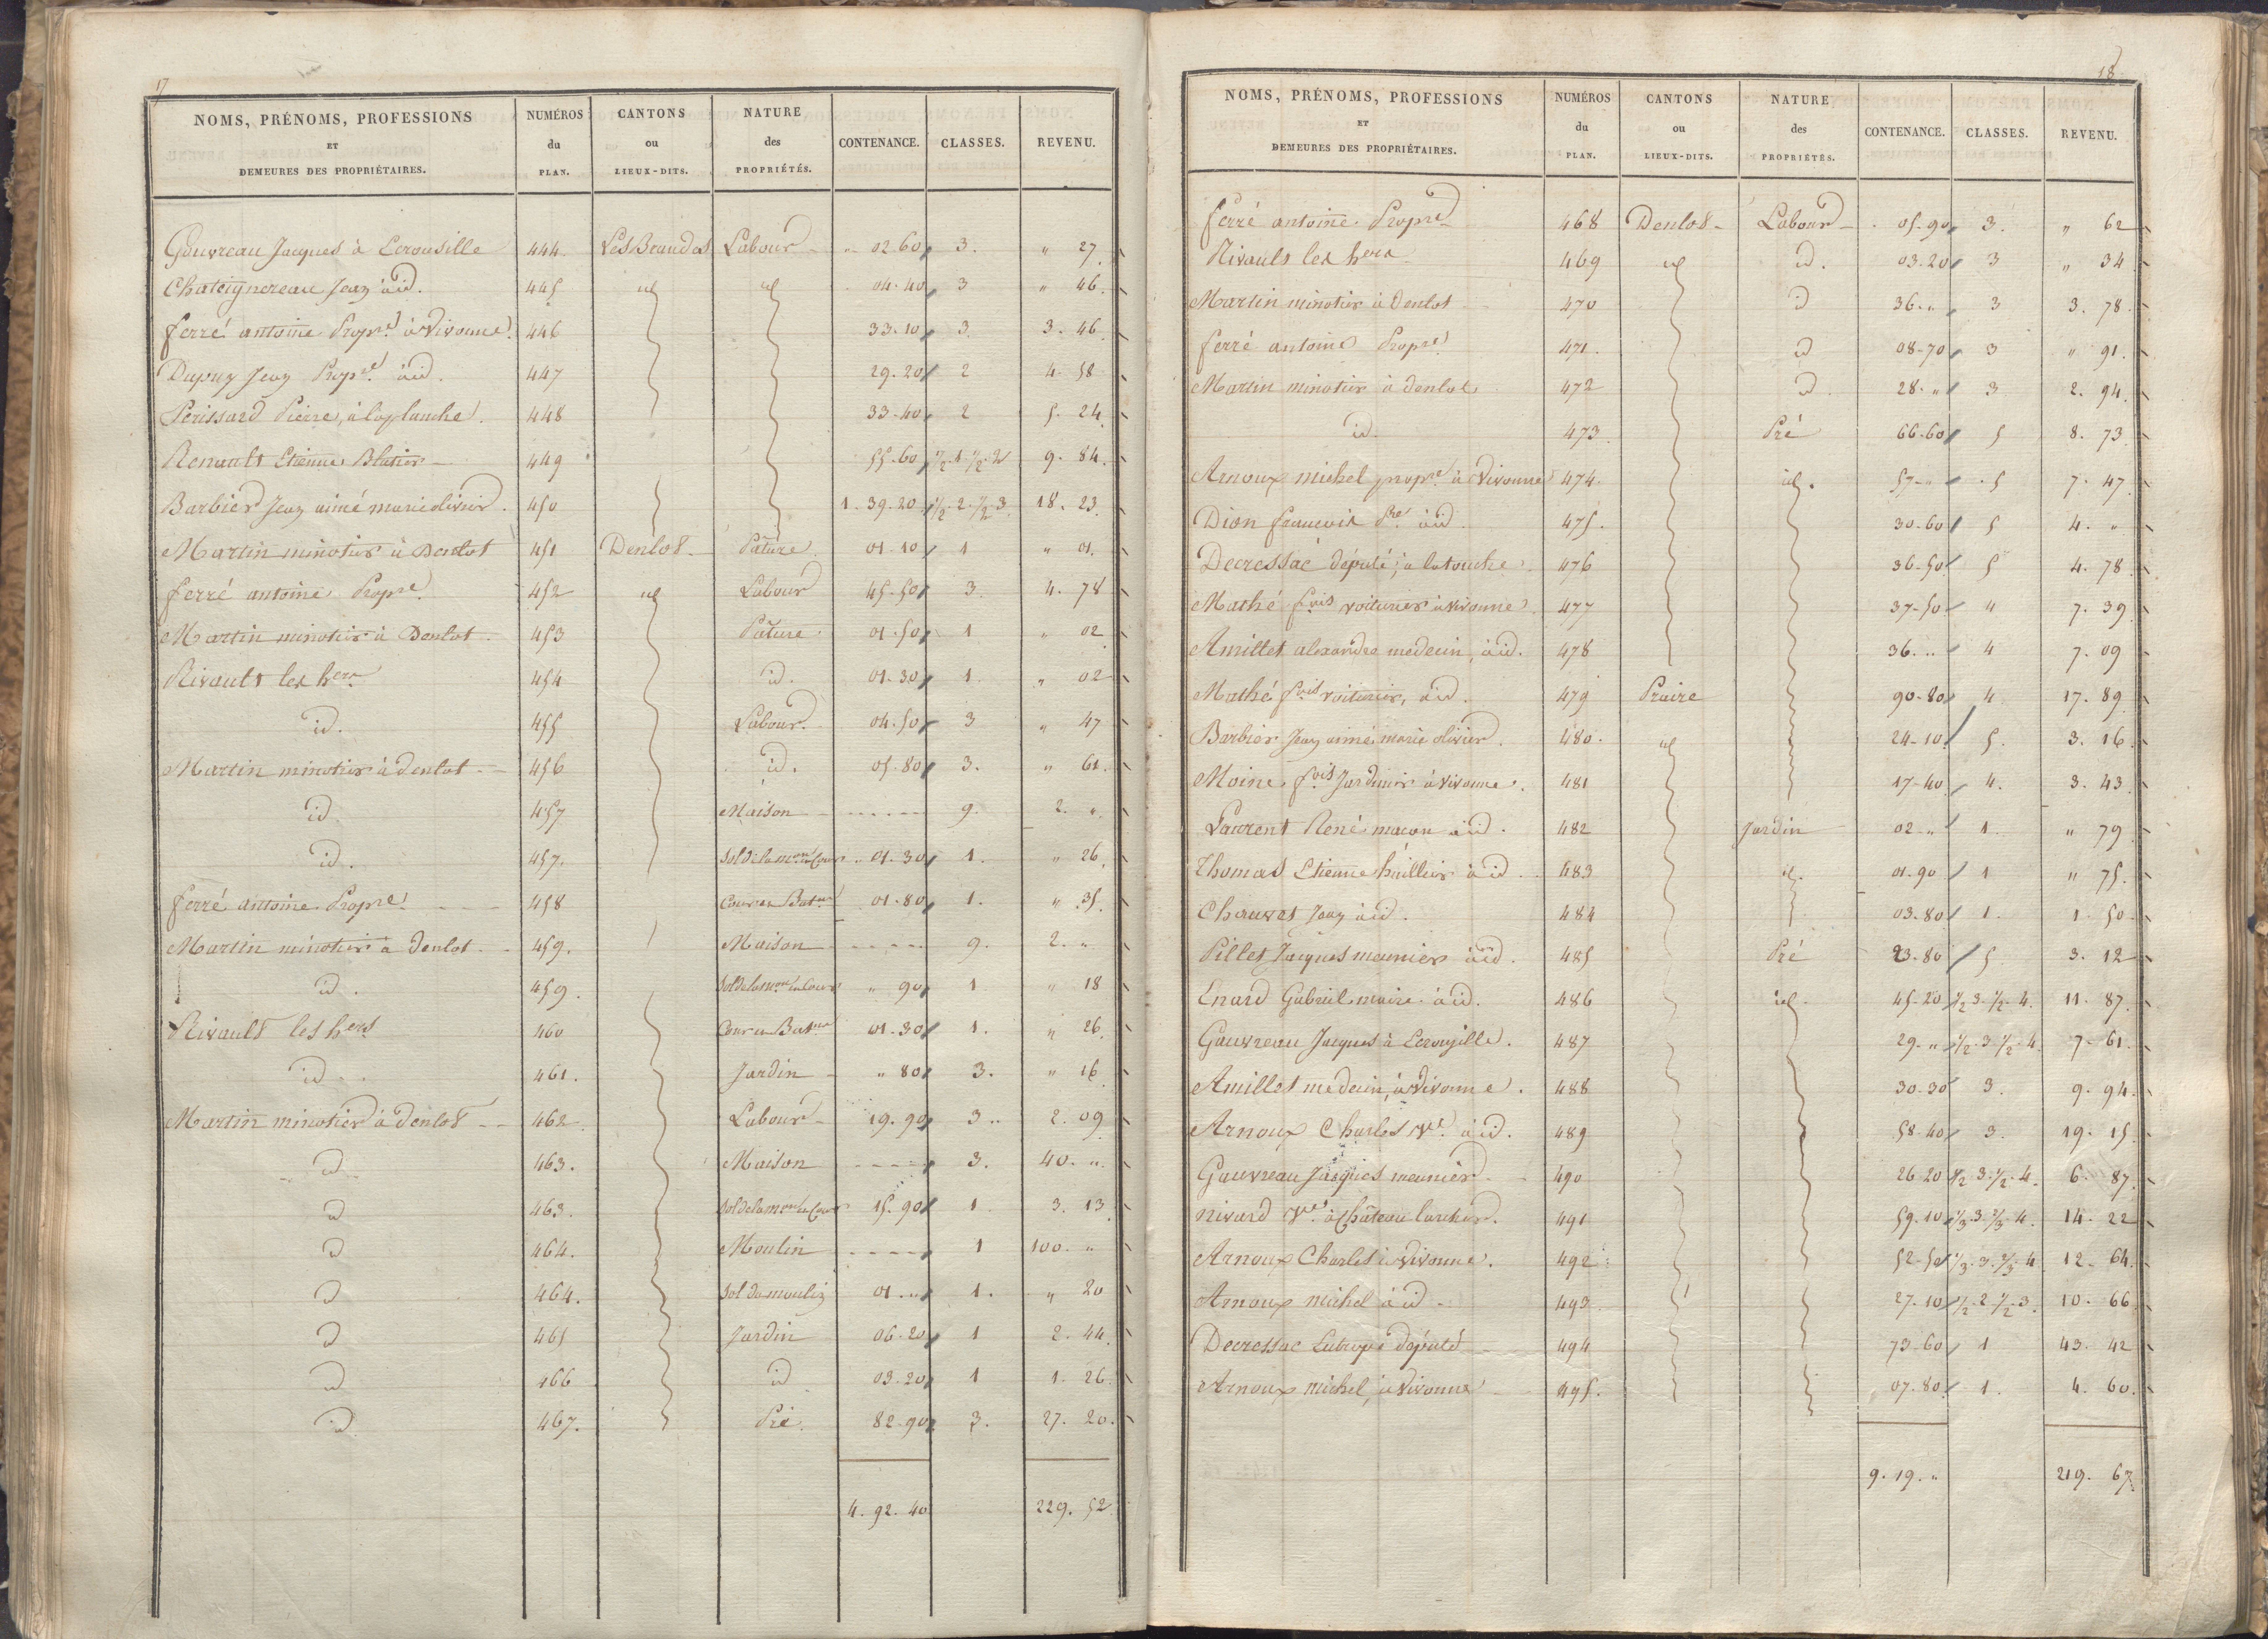 17
NOMS, PRÉNOMS, PROFESSIONS ET DEMEURES DES PROPRIÉTAIRES. NUMÉROS du PLAN. CANTONS ou LIEUX-DITS. NATURE des PROPRIÉTÉS. CONTENANCE. CLASSES. REVENU.
Gouvreau Jacques à Ecrousille 444. Les Brandes Labour 02.60 3. " 27
Chateignereau Jean à id. 445 id id 04.40 3 " 46.
ferré antoine Propre. à Vivonne 446 33.10 3 3. 46
Dupuy Jean Propre. à id. 447 29.20 2 4. 58
Perissard Pierre, à la planche. 448 33.40 2 5. 24
Renault Etienne Blatier 449 55.60 1/2.1.1/2.2 9. 84.
Barbier Jean aimé marie olivier. 450 1.39.20 1/2.2.1/2.3 18. 23.
Martin minotier à Denlot 451 Denlot Pature 01.10 1 " 01.
ferré antoine Propre. 452 id Labour 45.50 3. 4. 78
Martin minotier à Denlot 453 Pature 01.50 1 " 02
Rivault les hers 454 id. 01.30 1. " 02
id. 455 Labour 04.50 3 " 47
Martin minotier à denlot 456 id. 05.80 3. " 61.
id. 457 Maison 9. 2. "
id. 457. Sol de la mon. et Cour 01.30 1. " 26.
ferré antoine Propre. 458 Cour et Batns 01.80 1. " 35.
Martin minotier à Denlot 459. Maison 9. 2. "
id. 459. Sol de la mon. et Cour " 90 1 " 18
Rivault les hers 460 Cour et Batns 01.30 1. " 26.
id. 461. Jardin " 80 3. " 16.
Martin minotier à denlot 462 Labour 19.90 3.. 2. 09
id 463. Maison 3. 40. "
id 463. Sol de la mon et Cour 15.90 1 3. 13
id 464. Moulin 1 100. "
id 464. Sol du moulin 01. " 1. " 20
id 465 Jardin 06.20 1 2. 44.
id 466 id 03.20 1 1. 26.
id 467. Pré. 82.90 3. 27. 20.
4. 92. 40 229. 52
18
NOMS, PRÉNOMS, PROFESSIONS ET DEMEURES DES PROPRIÉTAIRES. NUMÉROS du PLAN. CANTONS ou LIEUX-DITS. NATURE des PROPRIÉTÉS. CONTENANCE. CLASSES. REVENU.
ferré antoine Propre 468 Denlot Labour 05.90 3. " 62
Rivault les hers 469 id id. 03.20 3 " 34
Martin minotier à Denlot 470 id 36. " 3 3. 78.
ferré antoine Propre 471. id 08.70 3 " 91.
Martin minotier à denlot 472 id. 28. " 3 2. 94.
id. 473. Pré 66.60 5 8. 73
Arnoux michel propre. à Vivonne 474. id. 57. " 5 7. 47
Dion francois Pre. à id. 475. 30.60 5 4. "
Decressac député, à latouche 476 36.50 5 4. 78
Mathé fois voiturier à vivonne. 477 37.50 4 7. 39
Amillet alexandre medecin, à id. 478 36. " 4 7. 09
Mathé fois voiturier, à id. 479 Prairie 90.80 4. 17. 89
Barbier Jean aimé marie olivier. 480. id 24.10 5. 3. 16
Moine fois Jardinier à Vivonne. 481 17.40 4. 3. 43
Laurent René macon à id. 482 Jardin 02. " 1. " 79
Thomas Etienne huillier à id. 483 id. 01.90 1 " 75.
Chauvet Jean à id. 484 03.80 1. 1. 50
Pillet Jacques meunier à id. 485 Pré 23.80 5 3. 12
Enard Gabriel maire à id. 486 id. 45.20 1/2.3.1/2.4. 11. 87.
Gauvreau Jacques à Ecrousille. 487 29. " 1/2.3.1/2.4. 7. 61.
Amillet medecin, à Vivonne. 488 30.30 3. 9. 94.
Arnoux Charles Ve. à id. 489 58.40 3. 19. 15.
Gauvreau Jacques meunier 490 26.20 1/2.3.1/2.4. 6. 87.
nivard Ve. à Château larcher. 491 59.10 1/3.3.2/3.4. 14. 22
Arnoux Charles à Vivonne. 492 52.50 1/3.3.2/3.4 12. 64.
Arnoux michel à id. 493 27.10 1/2.2.1/2.3. 10. 66
Decressac Eutrope député 494 73.60 1 43. 42
Arnoux michel, à Vivonne 495. 07.80 1. 4. 60.
9. 19. " 219. 67